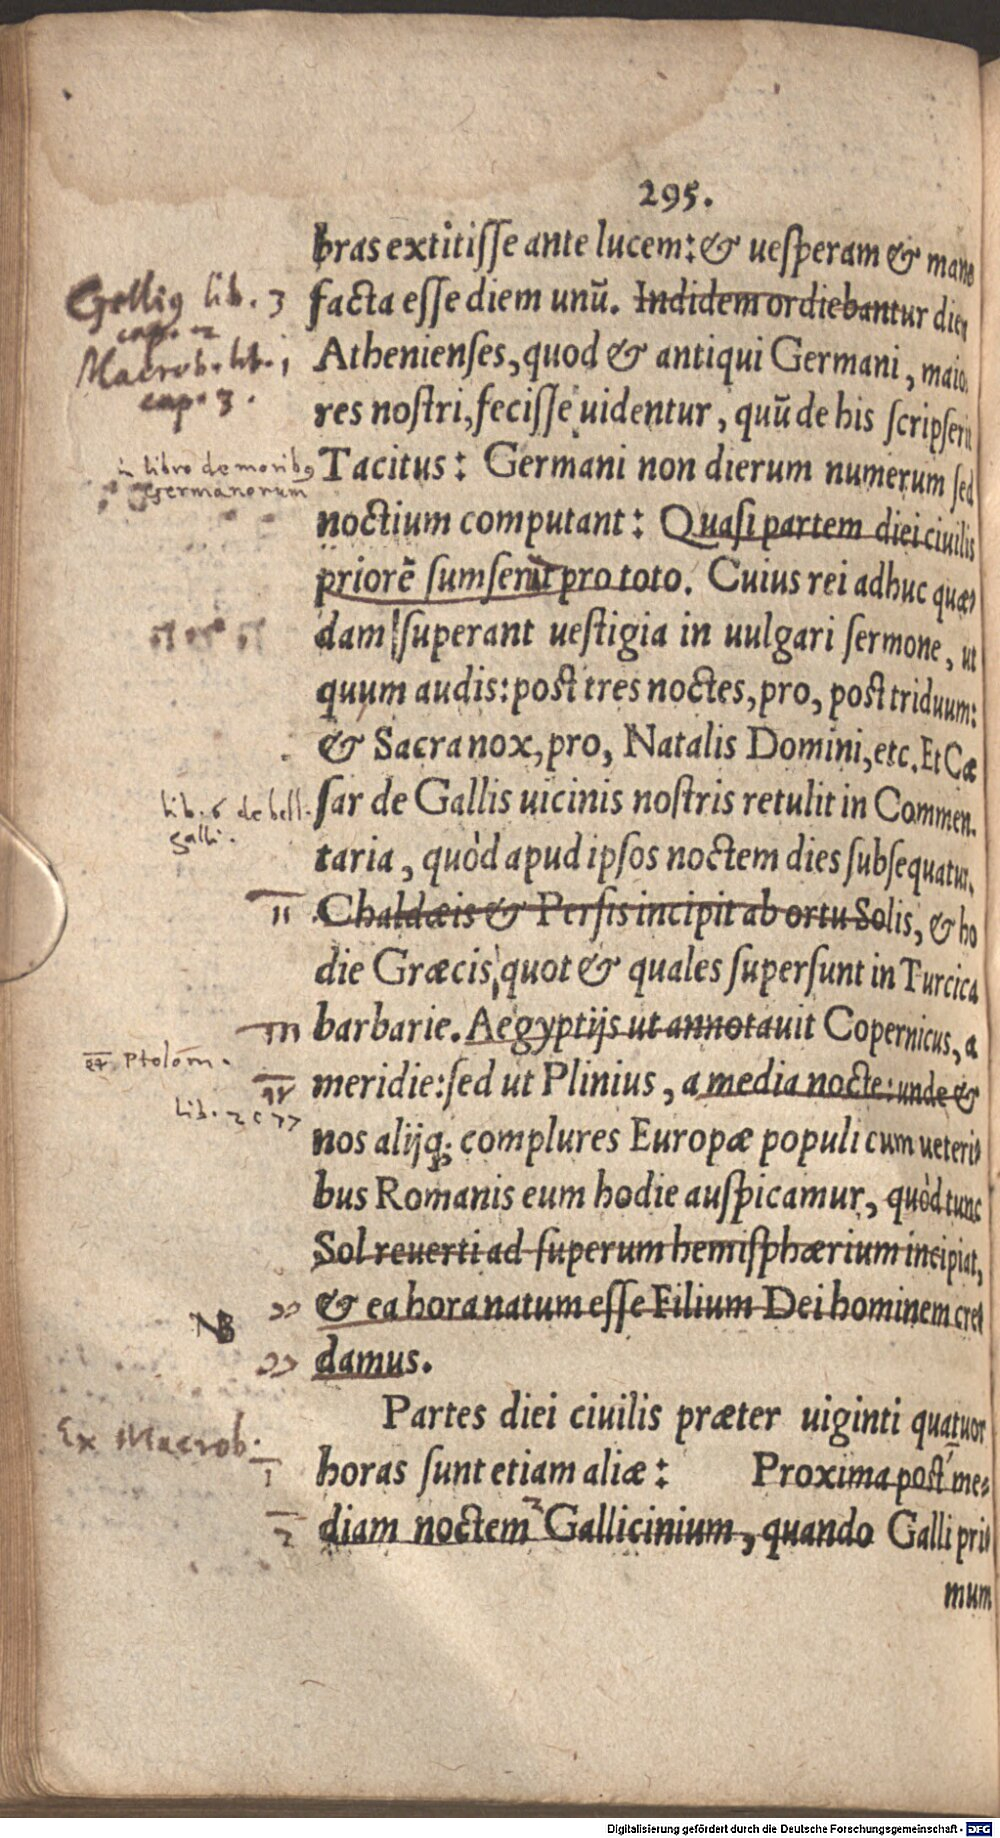 295.
bras extitiſſe ante lucem: & ueſperam & mane
facta eſſe diem unũ. Indidem ordiebantur diem
Gelliꝰ lib. 3
cap. 2
Athenienſes, quod & antiqui Germani, maio
Macrob. lib. 1
cap. 3.
res noſtri, feciſſe uidentur, quũ de his ſcripſerit
in libro de moribꝰ
Germanorum
Tacitus: Germani non dierum numerum ſed
noctium computant: Quaſi partem diei ciuilis
priorẽ ſumſerit pro toto. Cuius rei adhuc quæ⸗
dam ſuperant ueſtigia in uulgari ſermone, ut
quum audis: poſt tres noctes, pro, poſt triduum:
& Sacra nox, pro, Natalis Domini, etc. Et Cæ
lib. 6 de bell.
galli.
ſar de Gallis uicinis noſtris retulit in Commen.
taria, quòd apud ipſos noctem dies ſubſequatur.
II
Chaldæis & Perſis incipit ab ortu Solis, & ho
die Græcis, quot & quales ſuperſunt in Turcica
III
barbarie. Aegyptijs ut annotauit Copernicus, a
Ptolom.
meridie: ſed ut Plinius, a media nocte: unde &
lib. 2 c 77
nos alijq; complures Europæ populi cum ueteri⸗
bus Romanis eum hodie auſpicamur, quòd tunc
Sol reuerti ad ſuperum hemiſphærium incipiat,
NB
& ea hora natum eſſe Filium Dei hominem cre⸗
damus.
Partes diei ciuilis præter uiginti quatuor
Ex Macrob.
1
horas ſunt etiam aliæ: Proxima poſt me⸗
2
diam noctem Gallicinium, quando Galli pri⸗
mum
Digitalisierung gefördert durch die Deutsche Forschungsgemeinschaft - DFG